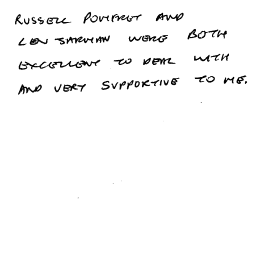 RUSSELL POMFRET AND
LEN JARMAN WERE BOTH
EXCELLENT TO DEAL WITH
AND VERY SUPPORTIVE TO ME.